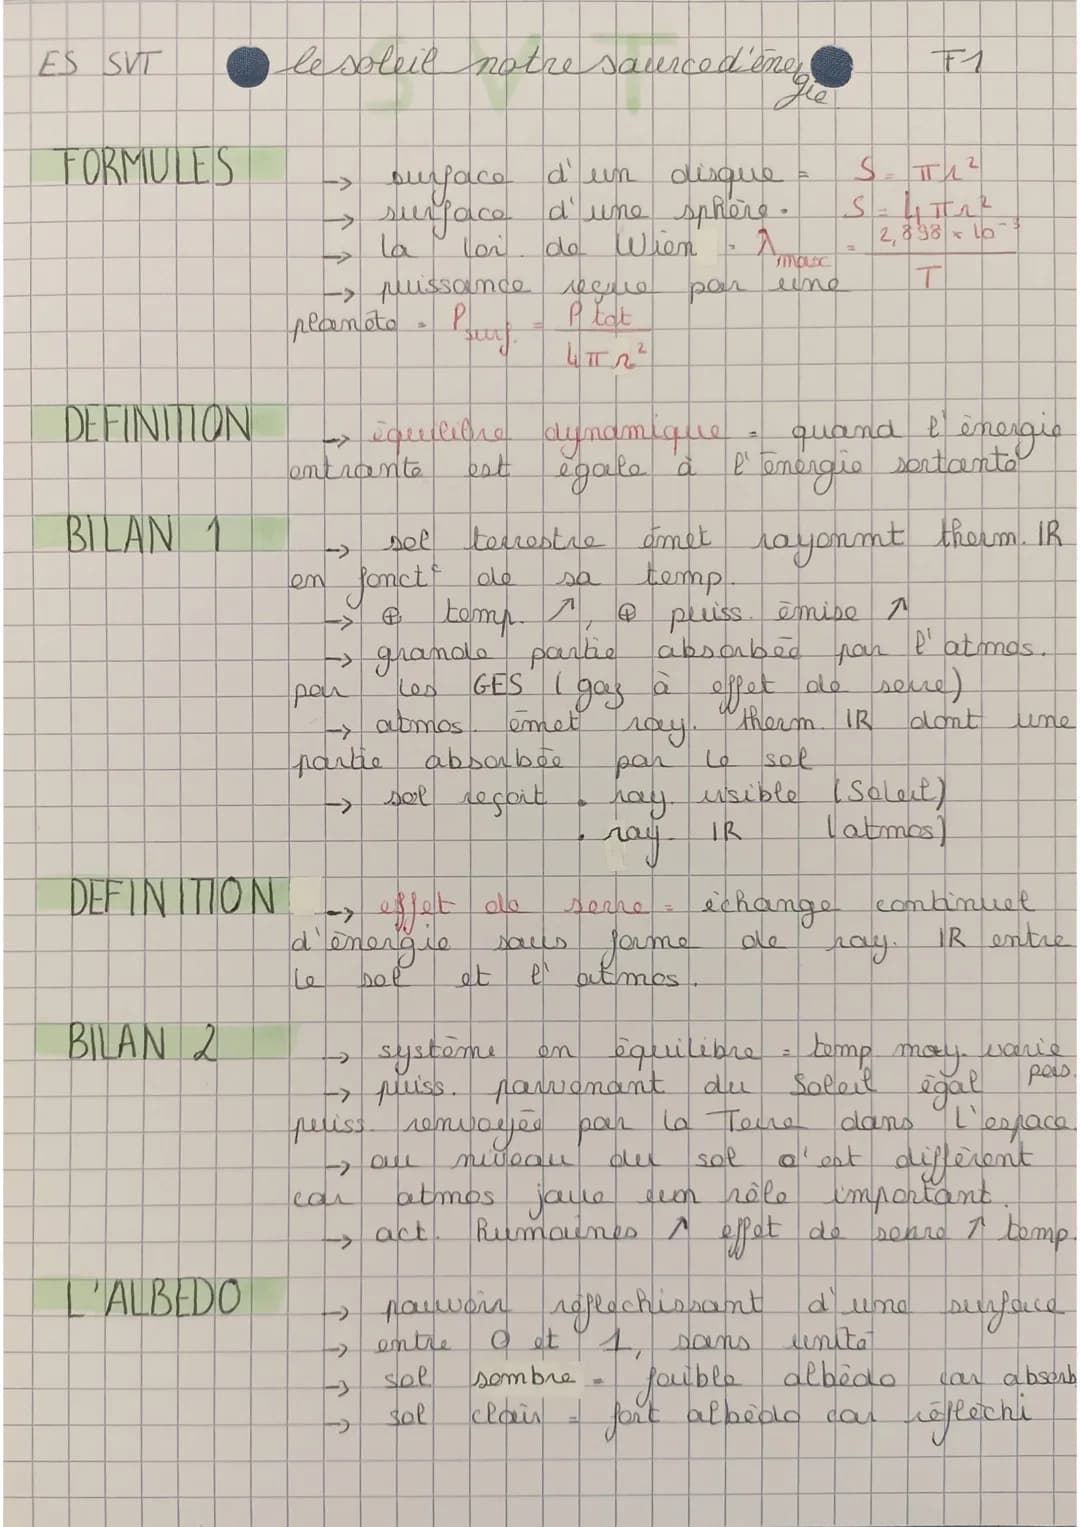 ES SVT le soleil notre source d'énergie F1
FORMULES → surface d'un disque = S = πr²
→ surface d'une sphère = S = 4πr²
→ la loi de Wien = λmax = 2,898 × 10⁻³ / T
→ puissance reçue par une
planète = Psurf. = Ptot / 4πr²
DEFINITION → équilibre dynamique = quand l'énergie
entrante est égale à l'énergie sortante
BILAN 1 → sol terrestre émet rayonmt therm. IR
en fonct° de sa temp.
→ ⊕ temp. ↗, ⊕ puiss. émise ↗
→ grande partie absorbée par l'atmos.
par les GES (gaz à effet de serre)
→ atmos. émet ray. therm. IR dont une
partie absorbée par le sol
→ sol reçoit • ray. visible (Soleil)
• ray. IR (atmos)
DEFINITION → effet de serre = échange continuel
d'énergie sous forme de ray. IR entre
le sol et l'atmos.
BILAN 2 → système en équilibre = temp moy. varie pas.
→ puiss. parvenant du Soleil égal
puiss. renvoyée par la Terre dans l'espace.
→ au niveau du sol c'est différent
car atmos joue un rôle important.
→ act. humaines ↗ effet de serre ↑ temp.
L'ALBEDO → pouvoir réflechissant d'une surface
→ entre 0 et 1, sans unité
→ sol sombre = faible albédo car absorb
→ sol clair = fort albédo car réfléchi